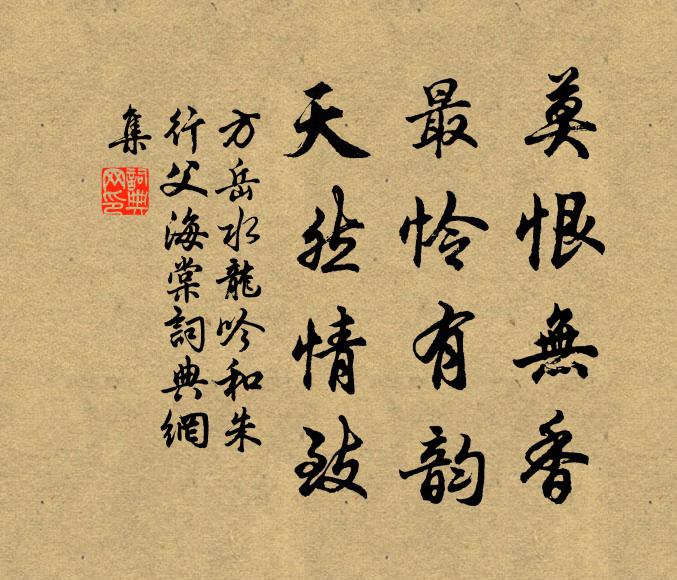 莫恨無香
最怜有韵
天然情致
方岳水龍吟和朱
行父海棠詞典網
集
詞典網印